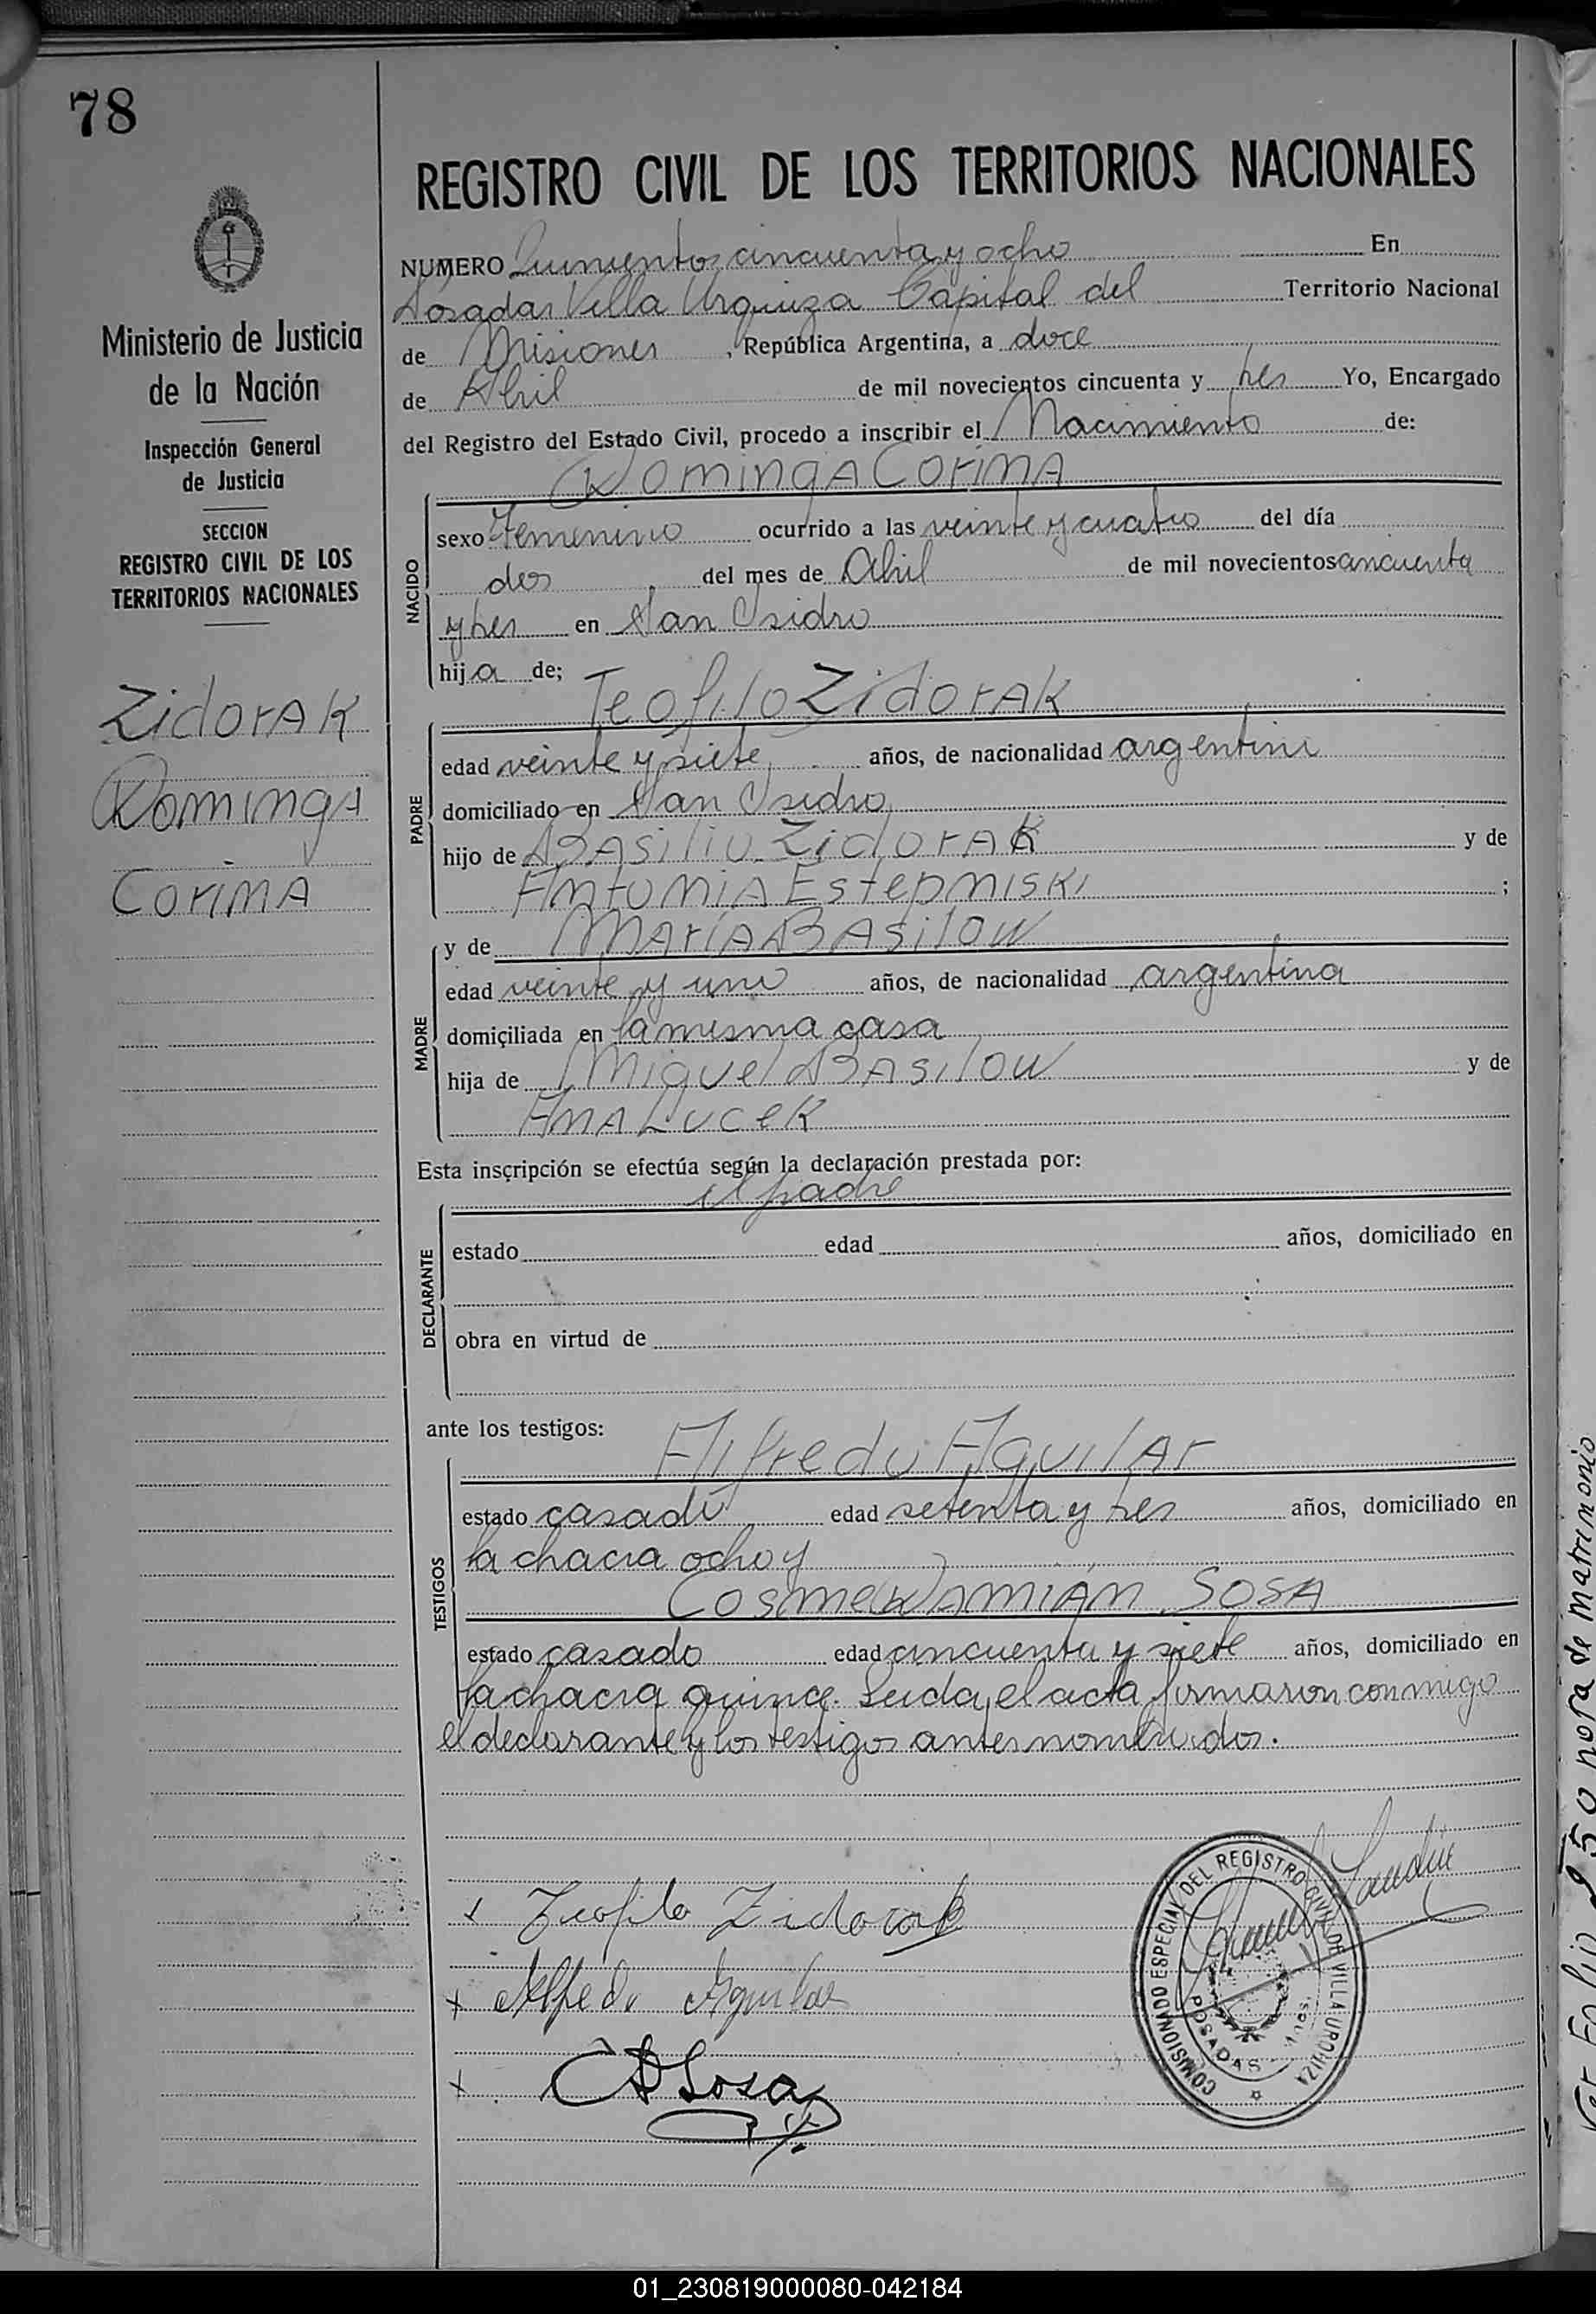 78
REGISTRO CIVIL DE LOS TERRITORIOS NACIONALES
Ministerio de Justicia
de la Nación
Inspección General
de Justicia
SECCION
REGISTRO CIVIL DE LOS
TERRITORIOS NACIONALES
Zidorak
Dominga
Corina
NUMERO Quinientos cincuenta y ocho En
Posadas Villa Urquiza Capital del Territorio Nacional
de Misiones, República Argentina, a doce
de Abril de mil novecientos cincuenta y tres Yo, Encargado
del Registro del Estado Civil, procedo a inscribir el Nacimiento de:
Dominga Corina
NACIDO
sexo Femenino ocurrido a las veinte y cuatro del día
dos del mes de Abril de mil novecientos cincuenta
y tres en San Isidro
hija de; Teofilo Zidorak
PADRE
edad veinte y siete años, de nacionalidad argentina
domiciliado en San Isidro
hijo de Basilio Zidorak y de
Antonia Estepniski ;
y de María Basilow
MADRE
edad veinte y uno años, de nacionalidad argentina
domiciliada en la misma casa
hija de Miguel Basilow y de
Ana Lucek
Esta inscripción se efectúa según la declaración prestada por:
el padre
DECLARANTE
estado edad años, domiciliado en
obra en virtud de
ante los testigos:
Alfredo Aguilar
TESTIGOS
estado casado edad setenta y tres años, domiciliado en
la chacra ocho y
Cosme Damián Sosa
estado casado edad cincuenta y siete años, domiciliado en
la chacra quince. Leida el acta firmaron conmigo
el declarante y los testigos antes nombrados.
x Teofilo Zidorak
x Alfredo Aguilar
x CDSosa
COMISIONADO ESPECIAL DEL REGISTRO CIVIL DE VILLA URQUIZA
POSADAS - Mnes.
nota de matrimonio
01_230819000080-042184